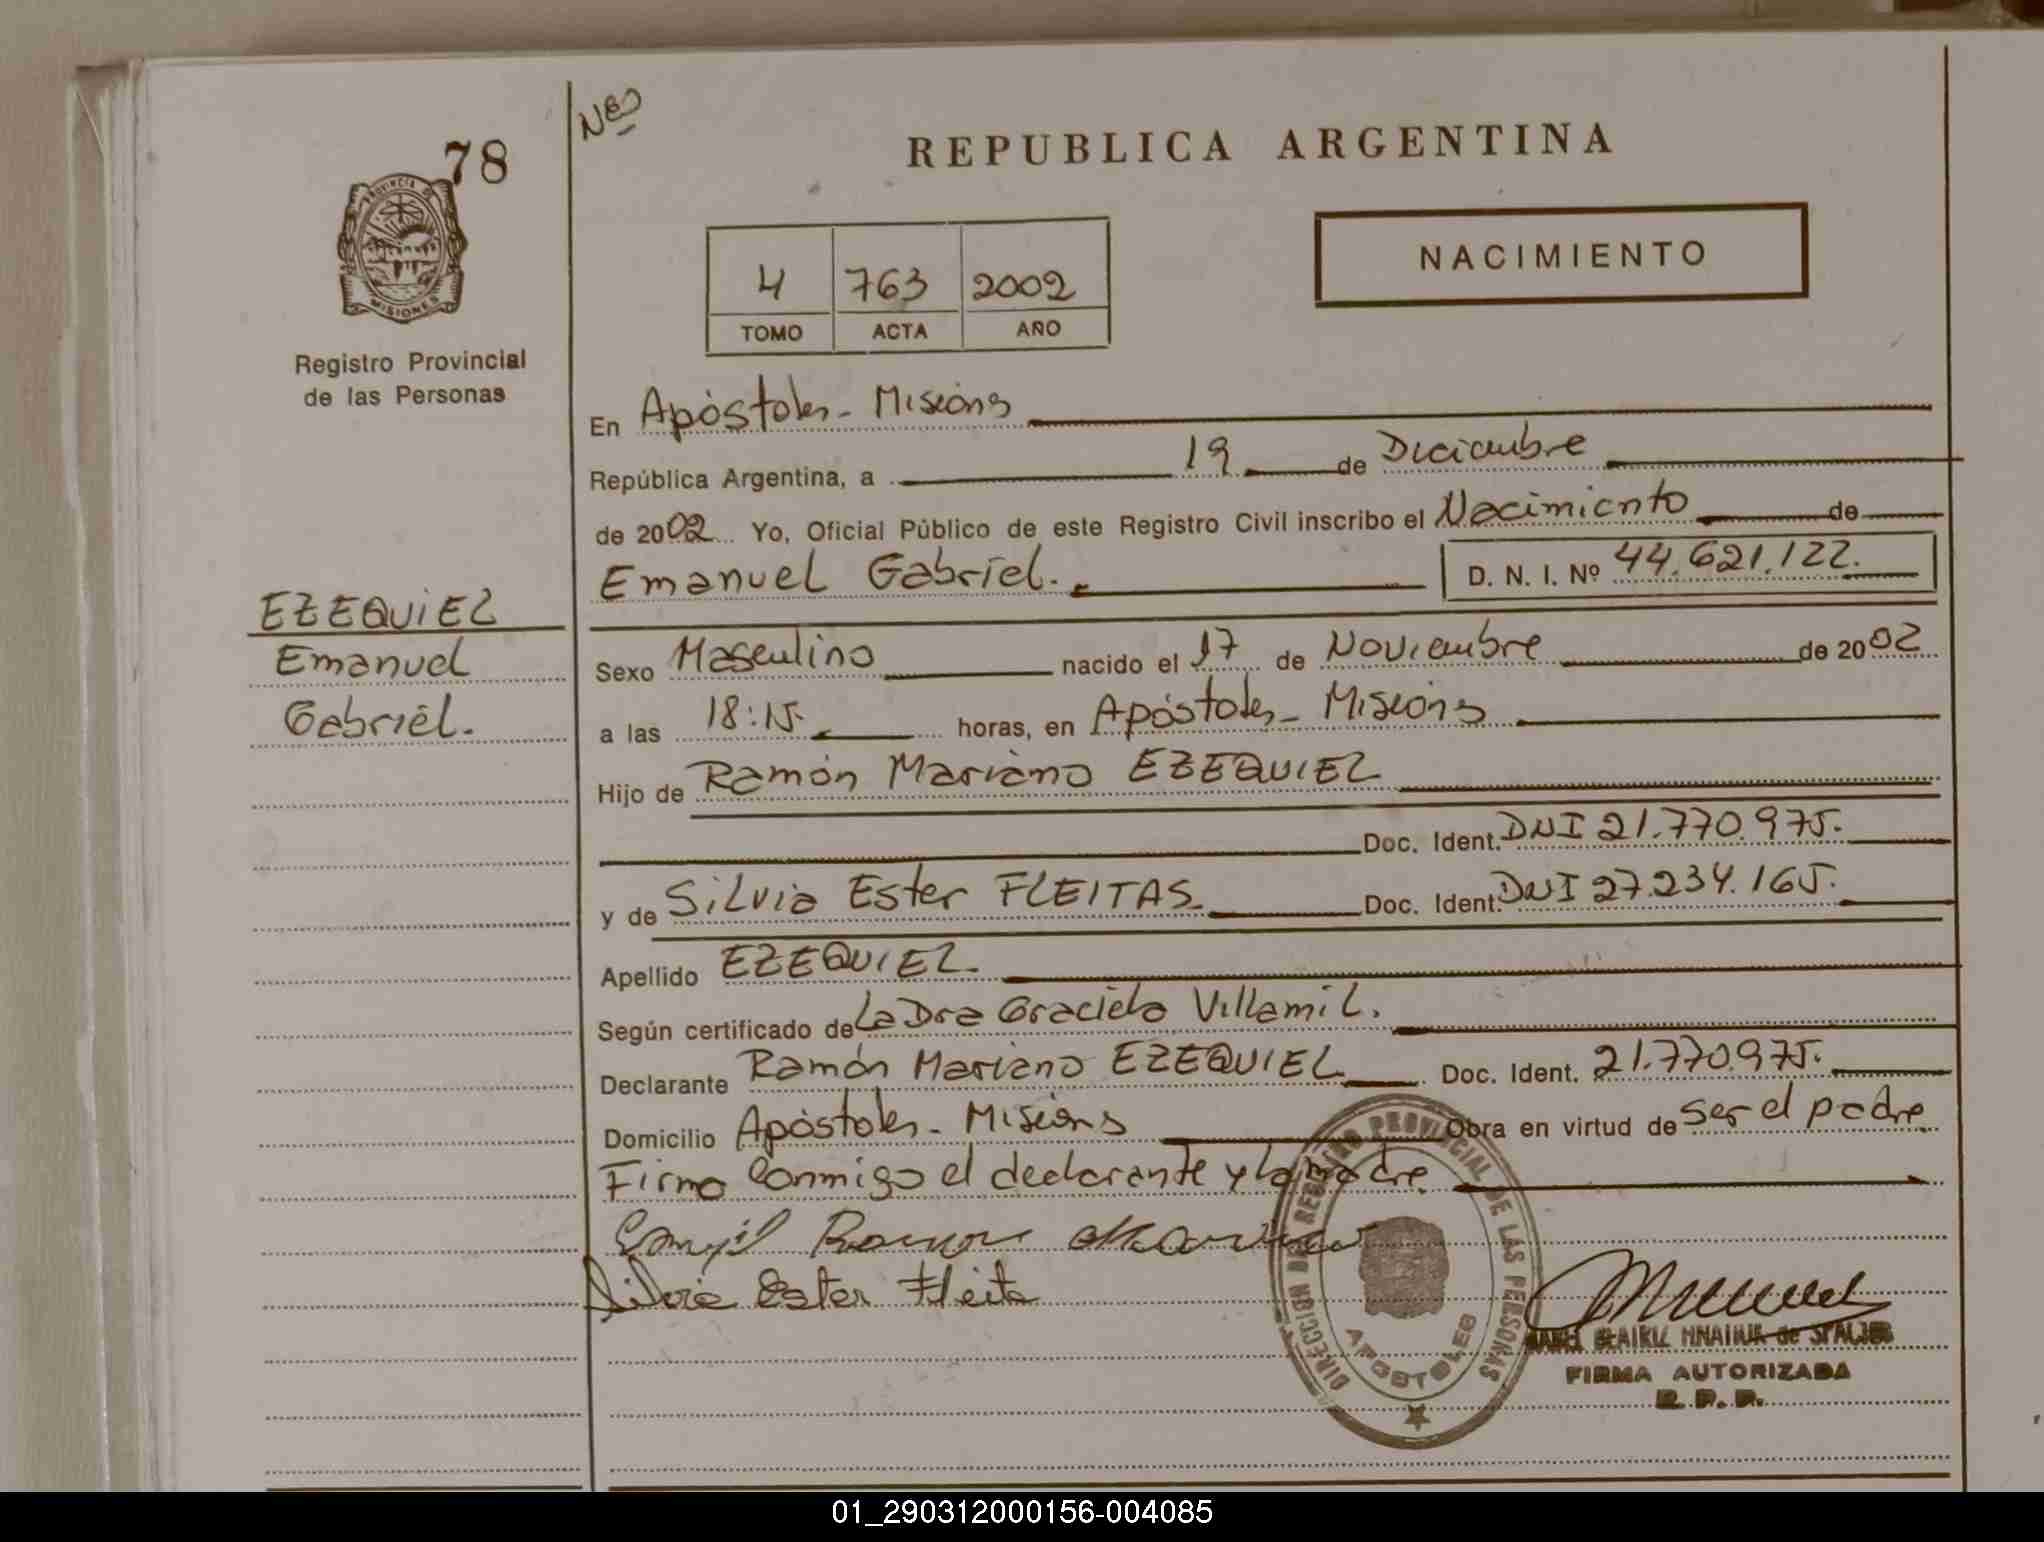 Neo
78
REPUBLICA ARGENTINA
PROVINCIA DE
MISIONES
NACIMIENTO
4 763 2002
TOMO ACTA AÑO
Registro Provincial
de las Personas
En Apóstoles - Misiones
República Argentina, a 19 de Diciembre
de 2002 Yo, Oficial Público de este Registro Civil inscribo el Nacimiento de
Emanuel Gabriel. D. N. I. Nº 44.621.122.
EZEQUIEL
Emanuel
Gabriel.
Sexo Masculino nacido el 17 de Noviembre de 2002
a las 18:15. horas, en Apóstoles - Misiones
Hijo de Ramón Mariano EZEQUIEL
Doc. Ident. DNI 21.770.975.
y de Silvia Ester FLEITAS. Doc. Ident. DNI 27.234.165.
Apellido EZEQUIEL.
Según certificado de La Dra Graciela Villamil.
Declarante Ramón Mariano EZEQUIEL Doc. Ident. 21.770.975.
Domicilio Apóstoles - Misiones Obra en virtud de ser el padre
Firma conmigo el declarante y la madre
Ramon Mariano
Silvia Ester Fleita
DIRECCION DEL REGISTRO PROVINCIAL DE LAS PERSONAS
APOSTOLES
de
FIRMA AUTORIZADA
R. P. P.
01_290312000156-004085